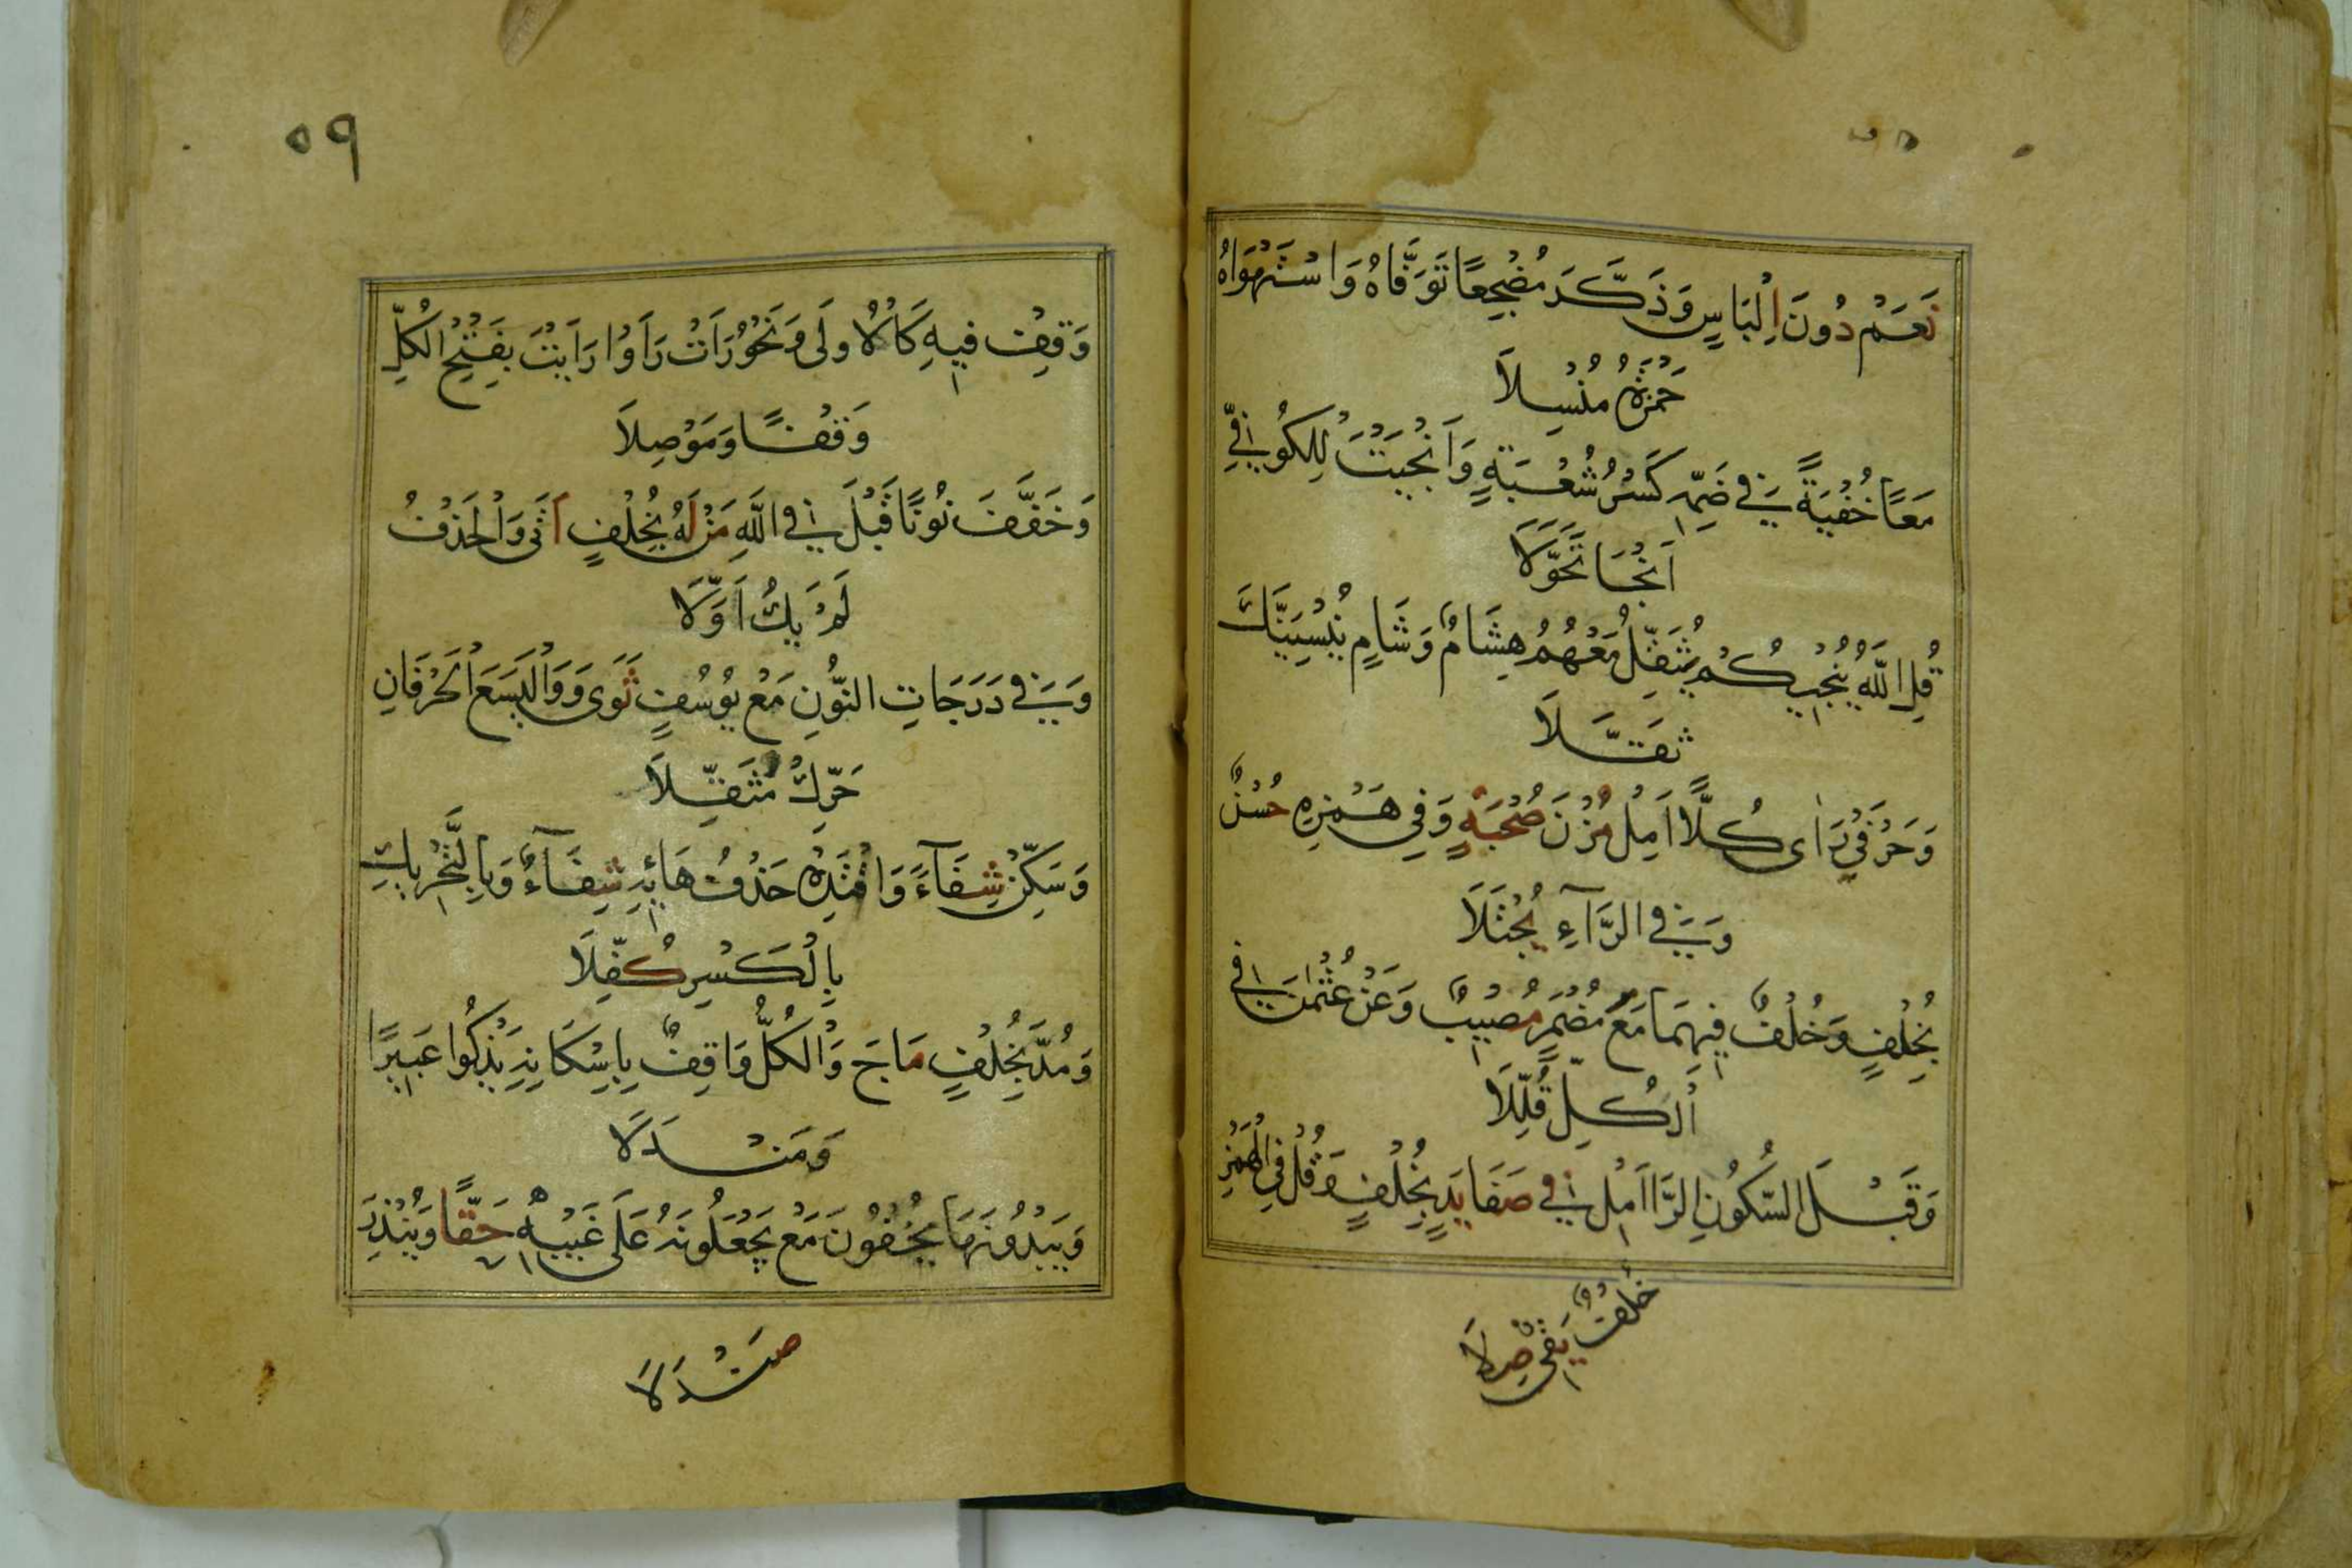 نَعَمْ دُونَ اِلْبَاسٍ وَذَكَّرَ مُضْجِعًا تَوَفَّاهُ وَاسْتَهْوَاهُ
حَمْزَةُ مُنْسِلَا
مَعًا خُفْيَةً فِي ضَمِّهِ كَسْرُ شُعْبَةٍ وَاَنْجَيْتَ لِلْكُوفِيِّ
اَنْجَا تَحَوَّلَا
قُلِ اللّٰهُ يُنْجِيكُمْ يُثَقِّلُ مَعْهُمُ هِشَامٌ وَشَامٍ يُنْسِيَنَّكَ
ثَقَّلَا
وَحَرْفَيْ رَاٰى كُلًّا اَمِلْ مُزْنَ صُحْبَةٍ وَفِي هَمْزِهِ حُسْنٌ
وَفِي الرَّآءِ يُجْتَلَا
بِخُلْفٍ وَخُلْفٌ فِيهِمَا مَعَ مُضْمَرٍ مُصِيبٌ وَعَنْ عُثْمٰنَ فِي
اَلْكُلِّ قُلِّلَا
وَقَبْلَ السُّكُونِ الرَّا اَمِلْ فِي صَفَا يَدٍ بِخُلْفٍ وَقُلْ فِي الْهَمْزِ
خُلْفٌ يَقِي صِلَا
٥٩
وَقِفْ فِيهِ كَالْاُولَى وَنَحْوُ رَاَتْ رَاَوْا رَاَيْتَ بِفَتْحِ الْكُلِّ
وَقْفًا وَمَوْصِلَا
وَخَفَّفَ نُونًا قَبْلَ فِي اللّٰهِ مَنْ لَهُ بِخُلْفٍ اَتَى وَالْحَذْفُ
لَمْ يَكُ اَوَّلَا
وَفِي دَرَجَاتِ النُّونِ مَعْ يُوسُفٍ ثَوَى وَوَالْيَسَعَ الْحَرْفَانِ
حَرِّكْ مُثَقِّلَا
وَسَكِّنْ شِفَآءً وَاقْتَدِهْ حَذْفُ هَائِهِ شِفَآءٌ وَبِالتَّحْرِيكِ
بِالْكَسْرِ كُفِّلَا
وَمُدَّ بِخُلْفٍ مَاجَ وَالْكُلُّ وَاقِفٌ بِاِسْكَانِهِ يَذْكُوا عَبِيرًا
وَمَنْدَلَا
وَيُبْدُونَهَا يُخْفُونَ مَعْ يَجْعَلُونَهُ عَلَى غَيْبِهِ حَقًّا وَيُنْذِرَ
صَنْدَلَا